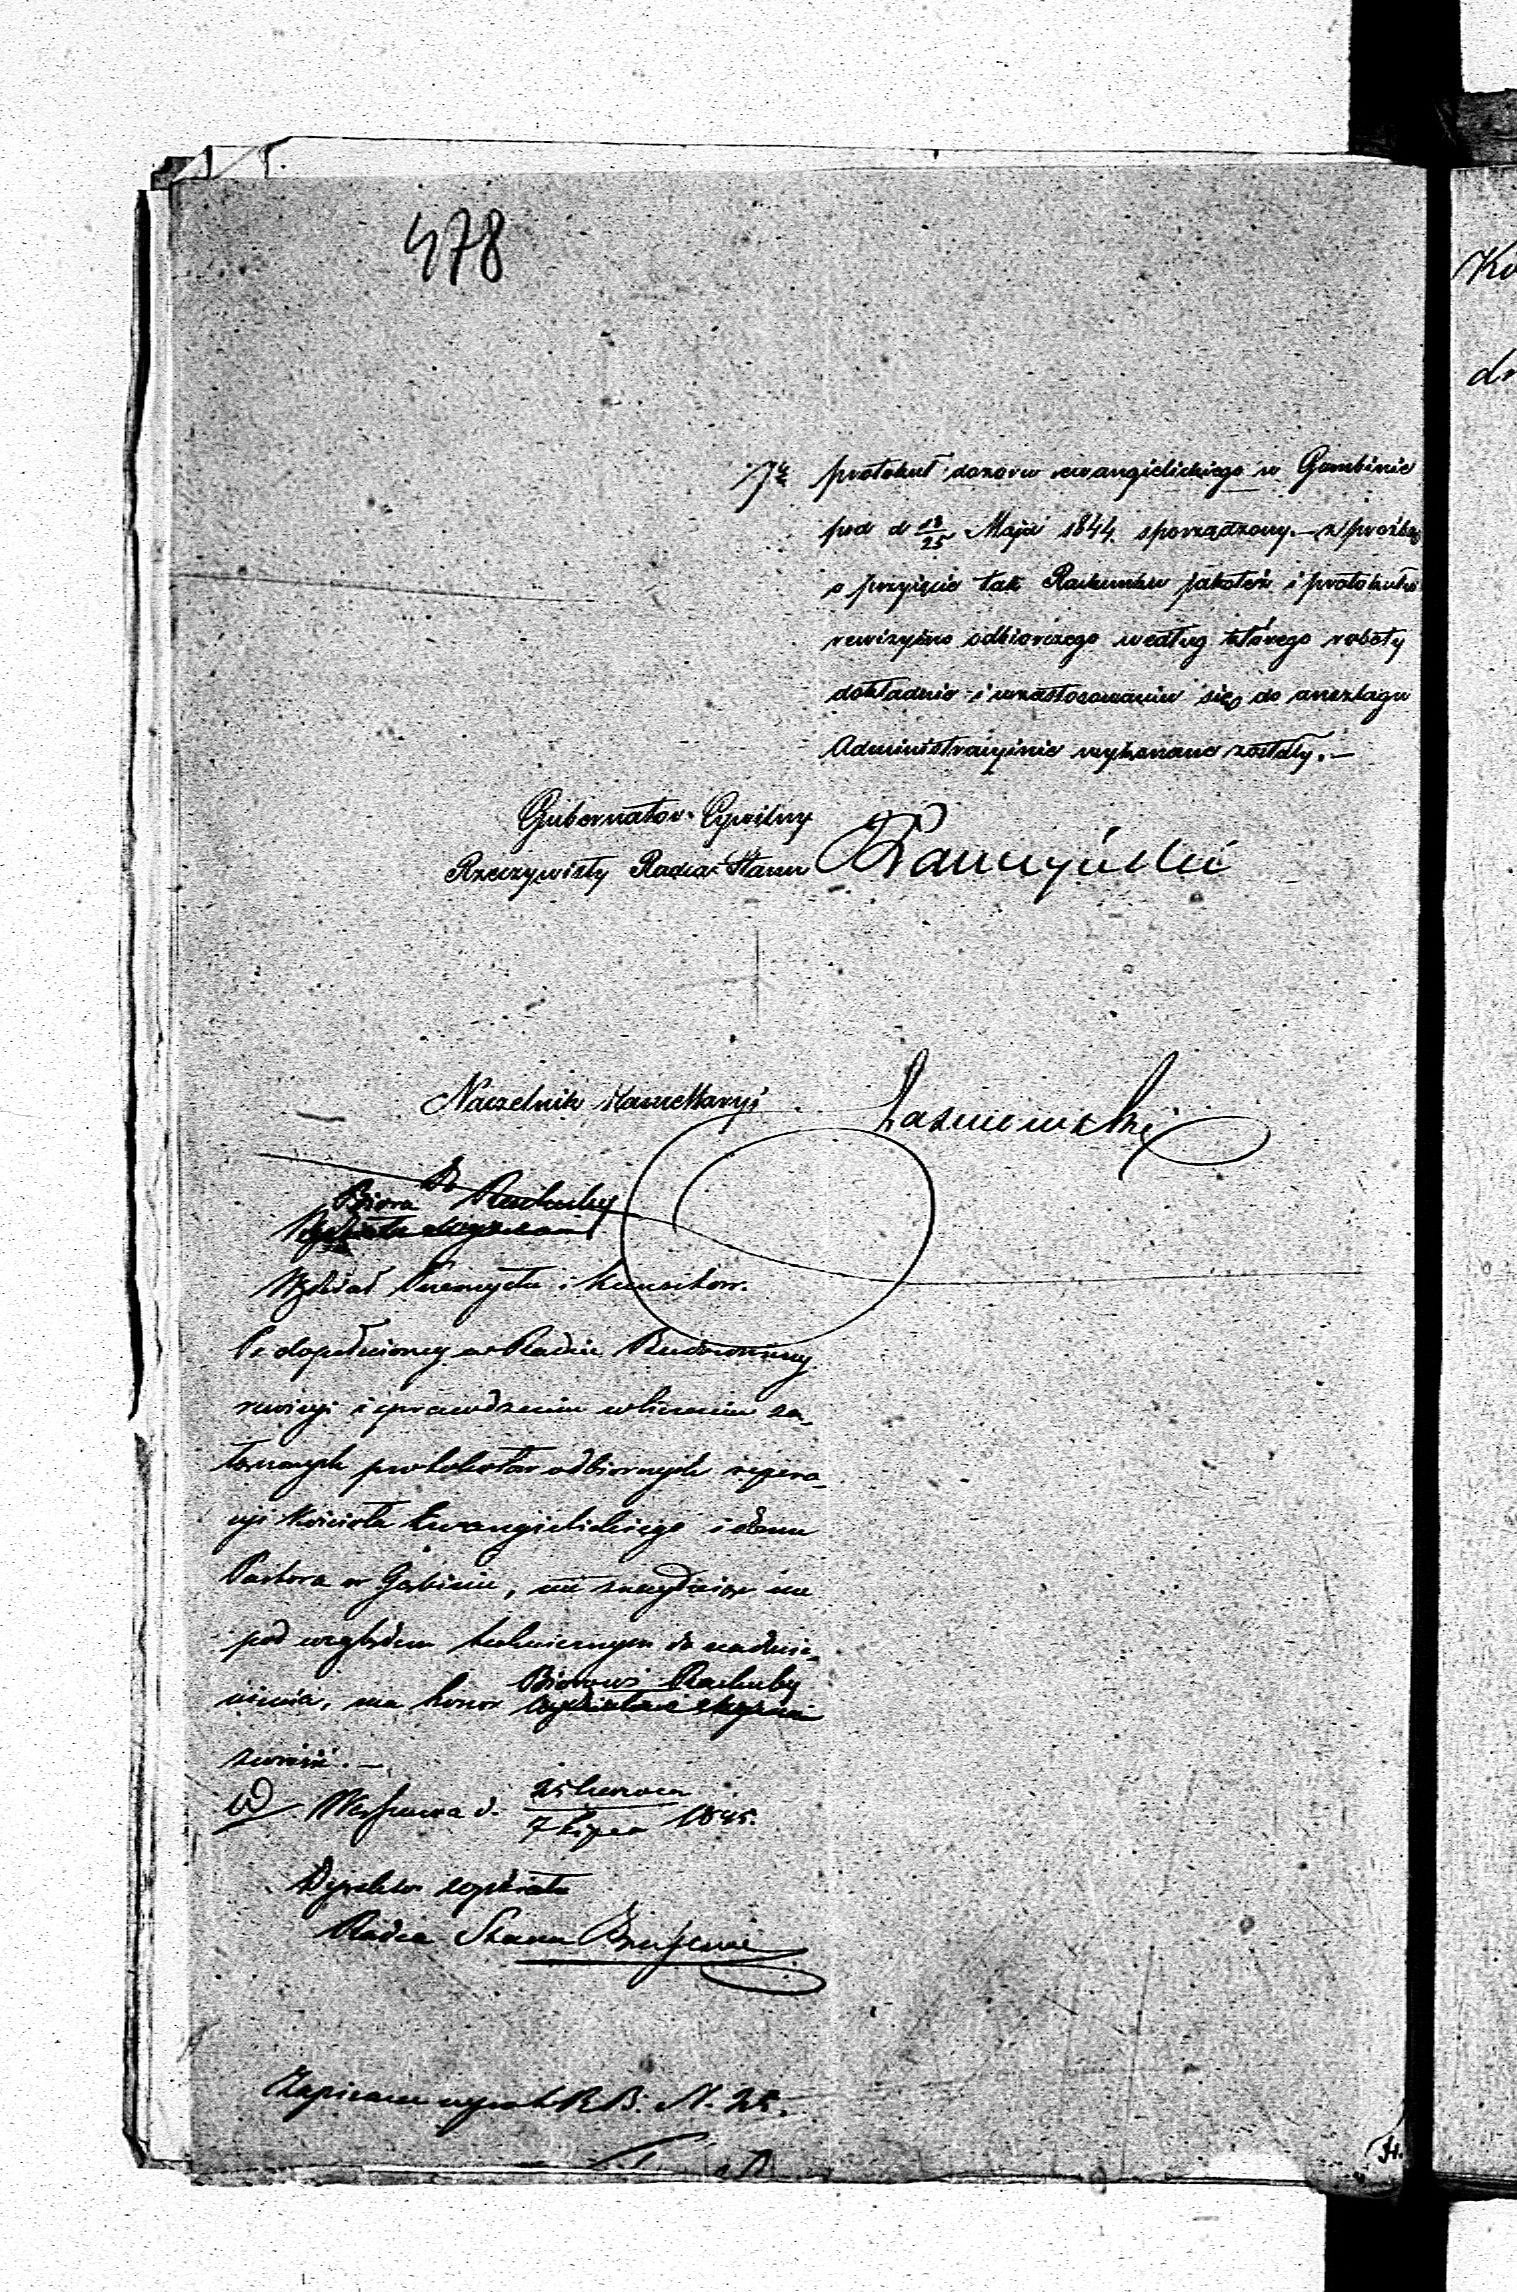 478
7e protokuł dozoru ewangielickiego w Gombinie
pod d 13/25 Maja 1844. sporządzony. – z prośbą
o przyięcie tak Rachunku jakoteż i protokułu
rewizyino odbiorczego według którego roboty
dokładnie i w zastosowaniu się do anszlagu
Administracyinie wykonane zostały. –
Gubernator Cywilny
Rzeczywisty Radca Stanu
Naczelnik Kancellaryi
Do
Biora Rachuby
Wydział Przemysłu i Kunsztów.
Po dopełnioney w Radzie Budowniczey
rewizyi i sprawdzeniu w liczeniu za-
łączonych protokołów odbiorczych repera-
cyi Kościoła Ewangielickiego i domu
Pastora w Gąbinie, nie znayduiąc nic
pod względem technicznym do nadmie-
nienia, ma honor Biorowi Rachuby
zwrócić. –
Warszawa d. 25 Czerwca / 7 Lipca 1845.
Dyrektor Wydziału
Radca Stanu
N. 25.